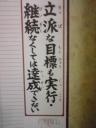 立派な目標も実行・
継続なくしては達成できない